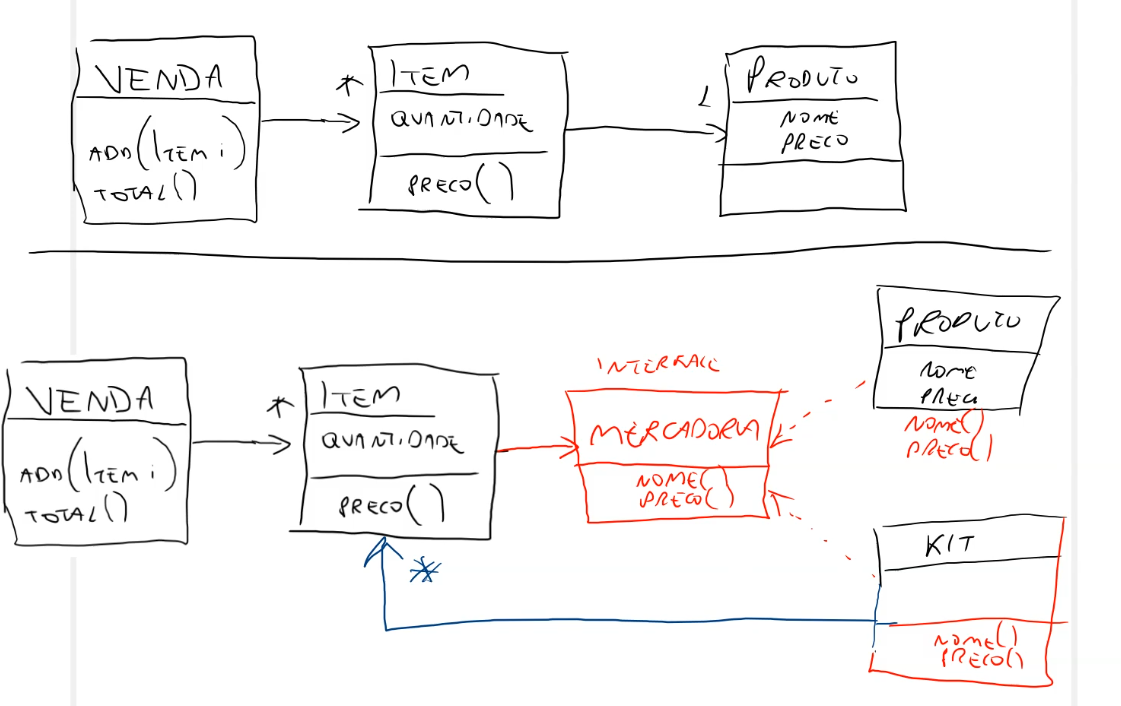 VENDA
ADD(ITEM i)
TOTAL()
*
ITEM
QUANTIDADE
PRECO()
1
PRODUTO
NOME
PRECO
VENDA
ADD(ITEM i)
TOTAL()
*
ITEM
QUANTIDADE
PRECO()
*
INTERFACE
MERCADORIA
NOME()
PRECO()
PRODUTO
NOME
PRECO
NOME()
PRECO()
KIT
NOME()
PRECO()